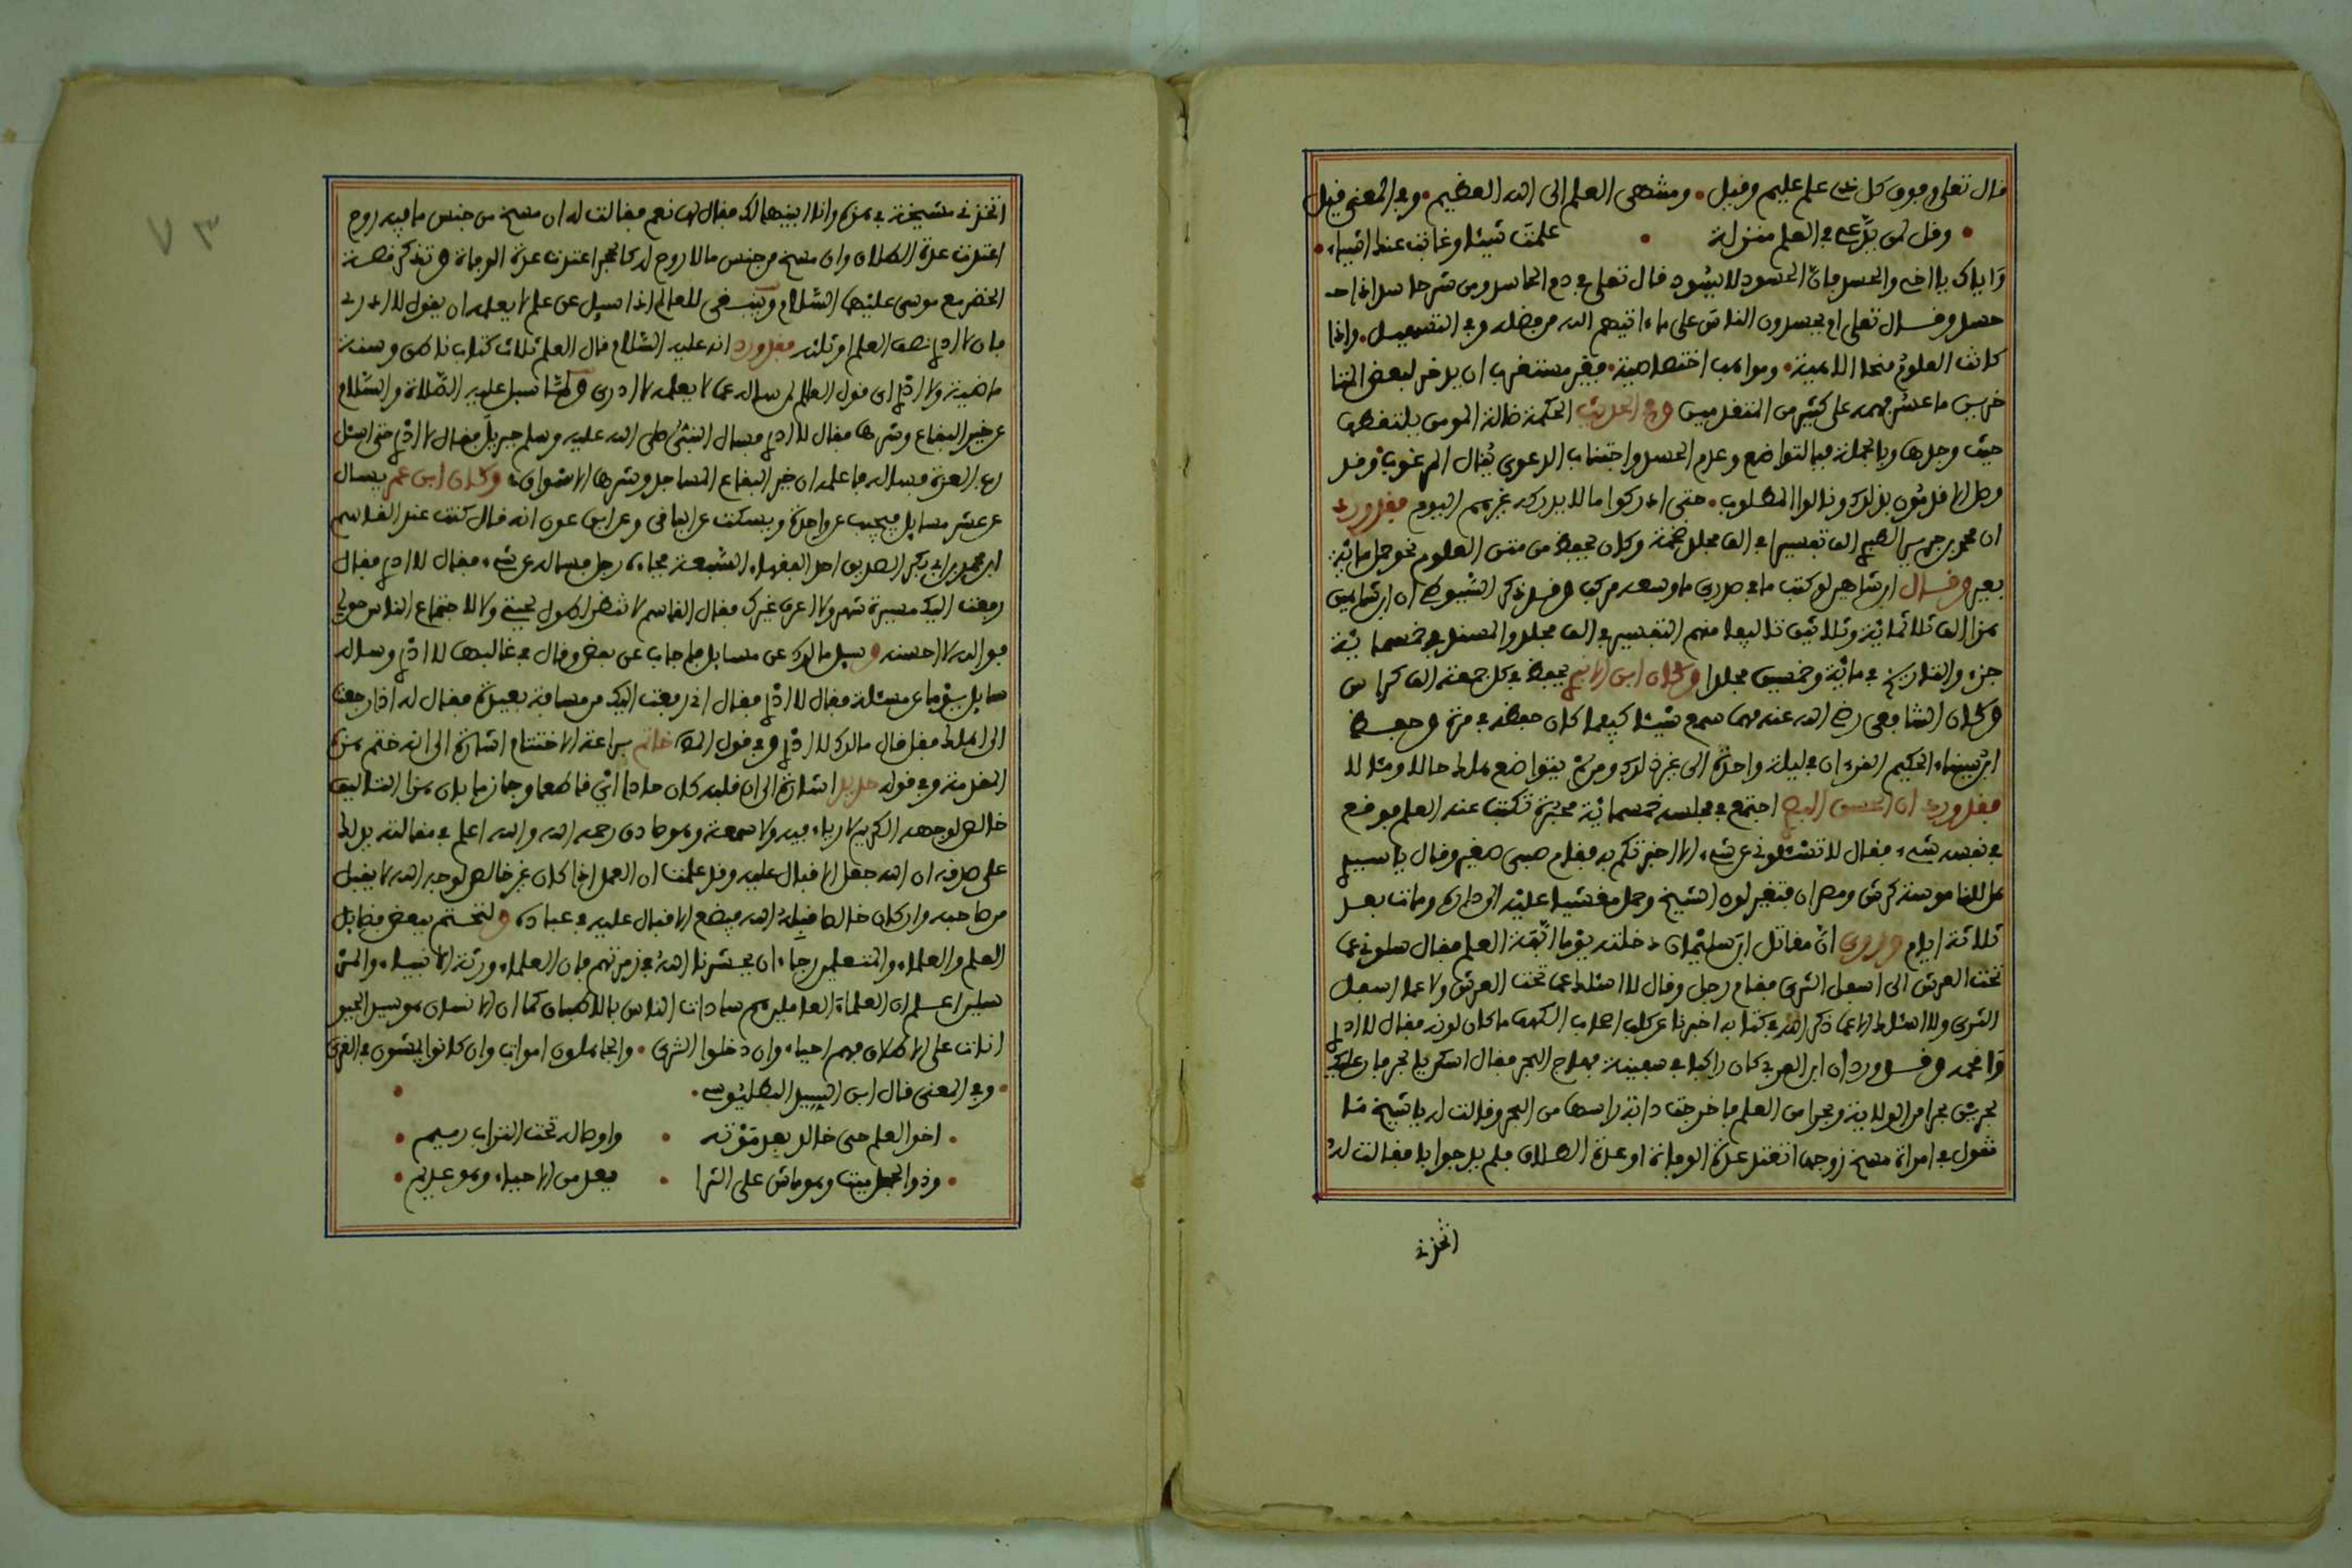 قال تعلى وفوق كل ذي علم عليم وقيل • ومنتهى العلم إلى الله العظيم • وفي المعنى قيل
• وقل لمن يدّعي في العلم منزلة • علمت شيئا وغابت عنك اشياء •
واياك يا اخي والحسد فان الحسود لا يسود قال تعلى في ذم الحاسد ومن شر حاسد اذا
حسد وقال تعلى ام يحسدون الناس على ما ءاتيهم الله من فضله وفي التسهيل • واذا
كانت العلوم منحا الاهية • ومواهب اختصاصية • فغير مستغرب ان يدخر لبعض المتا
خرين ما عسر فهمه على كثير من المتقدمين وفي الحديث الحكمة ضالة المومن يلتقطها
حيث وجدها وبالجملة فبالتواضع وعدم الحسد واجتناب الدعوى ينال المرغوب وقد
وصل الاقدمون بذلك ونالوا المطلوب • حتى ادركوا ما لا يدركه غيرهم اليوم فقد ورد
ان محمد بن جرير الف تفسيرا في الف مجلد ضخمة وكان يحفظ من متن العلوم نحو حمل مائة
بعير وقال ابن شاهين لو كتبت ما في صدري ما وسعه مركب وقد ذكر السيوطي ان ابن شاهين
هذا الف ثلاثمائة وثلاثين تاليفا منهم التفسير في الف مجلد والمسند في خمسمائة
جزء والتاريخ في مائة وخمسين مجلدا وكان ابن يحفظ في كل جمعة الف كراس
وكان الشافعي رضي الله عنه مهما سمع شيئا كيفما كان حفظه في مرة وحفظ
ابن سيناء الحكيم القرءان في ليلة واحدة الى غير ذلك ومن لم يتواضع هلك حالا ومئالا
فقد ورد ان الحسن اجتمع في مجلسه خمسمائة محبرة تكتب عنه العلم فوقع
في نفسه شيء فقال لا تسئلوني عن شيء الا اخبرتكم به فقام صبي صغير وقال يا سيدي
هل للناموسة كرش ومصران فتغير لون الشيخ وحمل مغشيا عليه الى داره ومات بعد
ثلاثة ايام وروي ان مقاتل ابن سليمان دخلته يوما ابهة العلم فقال سلوني عما
تحت العرش الى اسفل الثرى فقام رجل وقال لا اسئلك عما تحت العرش ولا عما اسفل
الثرى ولا اسئلك الا عما ذكر الله في كتابه اخبرنا عن كلب اصحاب الكهف ما كان لونه فقال لا ادري
وافحمه وقد ورد ان ابن العربي كان راكبا في سفينة فهاج البحر فقال اسكن يا بحر فان عليك
بحرين بحرا من الولاية وبحرا من العلم فاخرجت دابة راسها من البحر وقالت له يا شيخ ما
تقول في امراة مسخ زوجها اتعتد عدة الوفاة او عدة الطلاق فلم يدر جوابا فقالت له
اتخذني
٧٣
اتخذني شيخة في هذه وانا ابينها لك فقال لها نعم فقالت له ان مسخ من جنس ما فيه روح
اعتدت عدة الطلاق وان مسخ من جنس ما لا روح له كالحجر اعتدت عدة الوفاة وتذكر قصة
الخضر مع موسى عليهما السلام وينبغي للعالم اذا سيل عن علم لا يعلمه ان يقول لا ادري
فان لا ادري نصف العلم او ثلثه فقد ورد انه عليه السلام قال العلم ثلاث كتاب ناطق وسنة
ماضية ولا ادري اي قول العالم لمن ساله عما لا يعلمه لا ادري ولما سيل عليه الصلاة والسلام
عن خير البقاع وشرها فقال لا ادري فسال النبي صلى الله عليه وسلم جبريل فقال لا ادري حتى اسئل
رب العزة فساله فاعلمه ان خير البقاع المساجد وشرها الاسواق وكان ابن عمر يسال
عن عشر مسايل فيجيب عن واحدة ويسكت عن الباقي وعن ابن عون انه قال كنت عند القاسم
ابن محمد بن ابي بكر الصديق احد الفقهاء السبعة فجاءه رجل فساله عن شيء فقال لا ادري فقال
رفعت اليك مسيرة شهر ولا اعرف غيرك فقال القاسم لا تنظر لطول لحيتي ولا لاجتماع الناس حولي
فوالله لا احسنه وسيل مالك عن مسايل فاجاب عن بعض وقال في غالبها لا ادري وساله
سايل يوما عن مسئلة فقال لا ادري فقال اني رفعت اليك من مسافة بعيدة فقال له اذا رجعت
الى اهلك فقل قال مالك لا ادري وفي قول خاتم براعة الاختتام اشارة الى انه ختم هذه
المقدمة وفي قوله حديد اشارة الى ان قلبه كان حادا اي قاطعا وجازما بان هذا التاليف
خالص لوجهه الكريم لا رياء فيه ولا سمعة وهو صادق رحمه الله والله اعلم في مقالته يدلك
على صدقه ان الله جعل الاقبال عليه وقد علمت ان العمل اذا كان غير خالص لوجه الله لا يقبل
من صاحبه وان كان خالصا قبله الله فيضع الاقبال عليه في عباده ولنختم ببعض فضايل
العلم والعلماء والمتعلمين رجاء ان يحشرنا الله في زمرتهم فان العلماء ورثة الانبياء والمر
سلين اعلم ان العلماء العاملين هم سادات الناس بالاطباق كما ان الانسان هو سيد الحيو
انات على الاطلاق فهم احياء وان دخلوا الثرى • والجاهلون اموات وان كانوا يمشون في القرى
• وفي المعنى قال ابن السيد البطليوسي • •
• اخو العلم حي خالد بعد موته • واوصاله تحت التراب رميم •
• وذو الجهل ميت وهو ماش على الثرا • يعد من الاحياء وهو عديم •